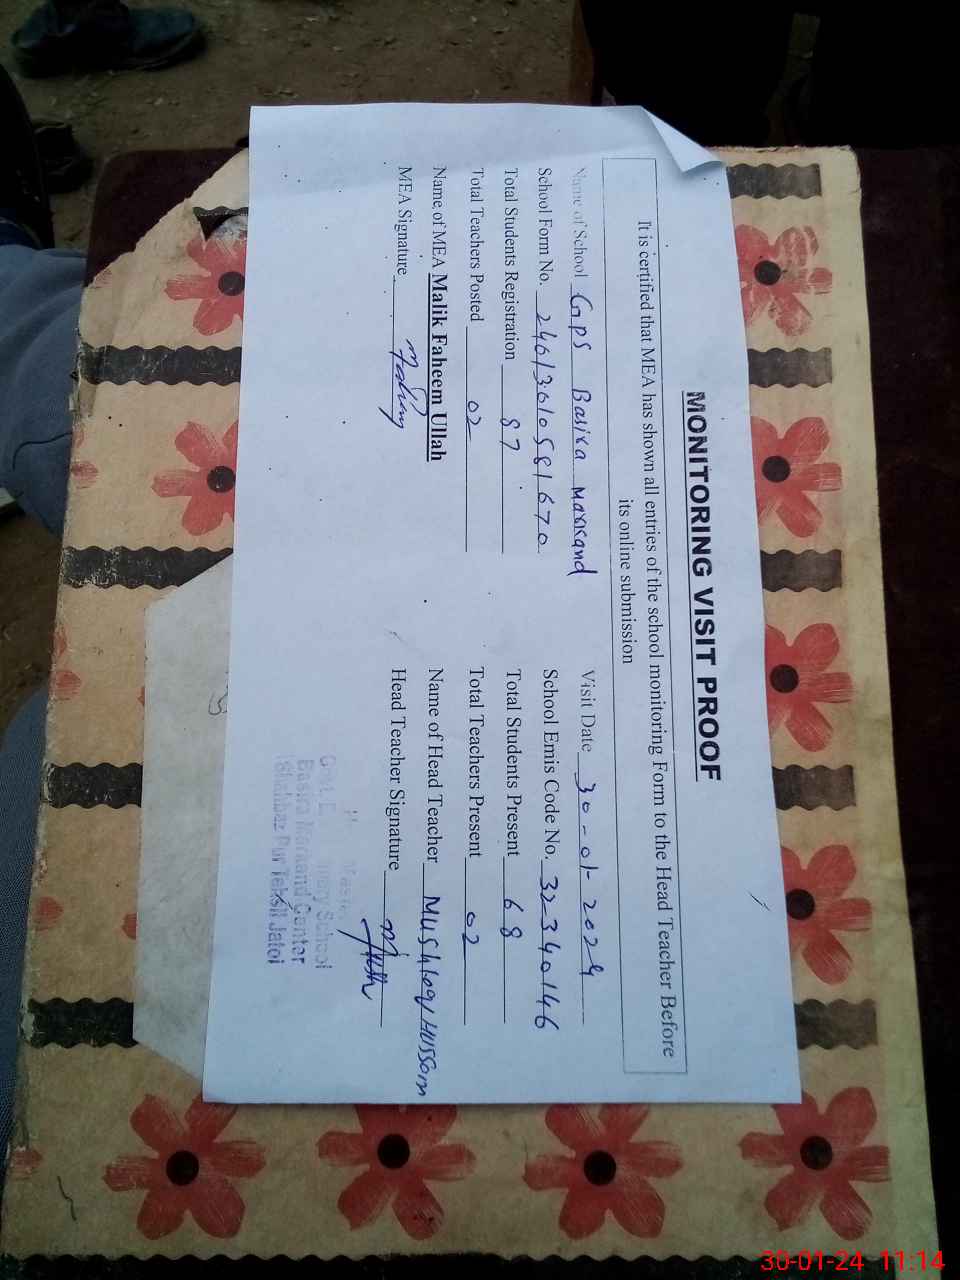 MONITORING VISIT PROOF
It is certified that MEA has shown all entries of the school monitoring Form to the Head Teacher Before
its online submission
Name of School GPS Basira Markand Visit Date 30-01-2024
School Form No. School Emis Code No. 32340146
Total Students Registration 87 Total Students Present 68
Total Teachers Posted 02 Total Teachers Present 02
Name of MEA Malik Faheem Ullah Name of Head Teacher
MEA Signature Head Teacher Signature
School
Basira Markand Center
Shahbaz Pur Tehsil Jatoi
30-01-24 11:14